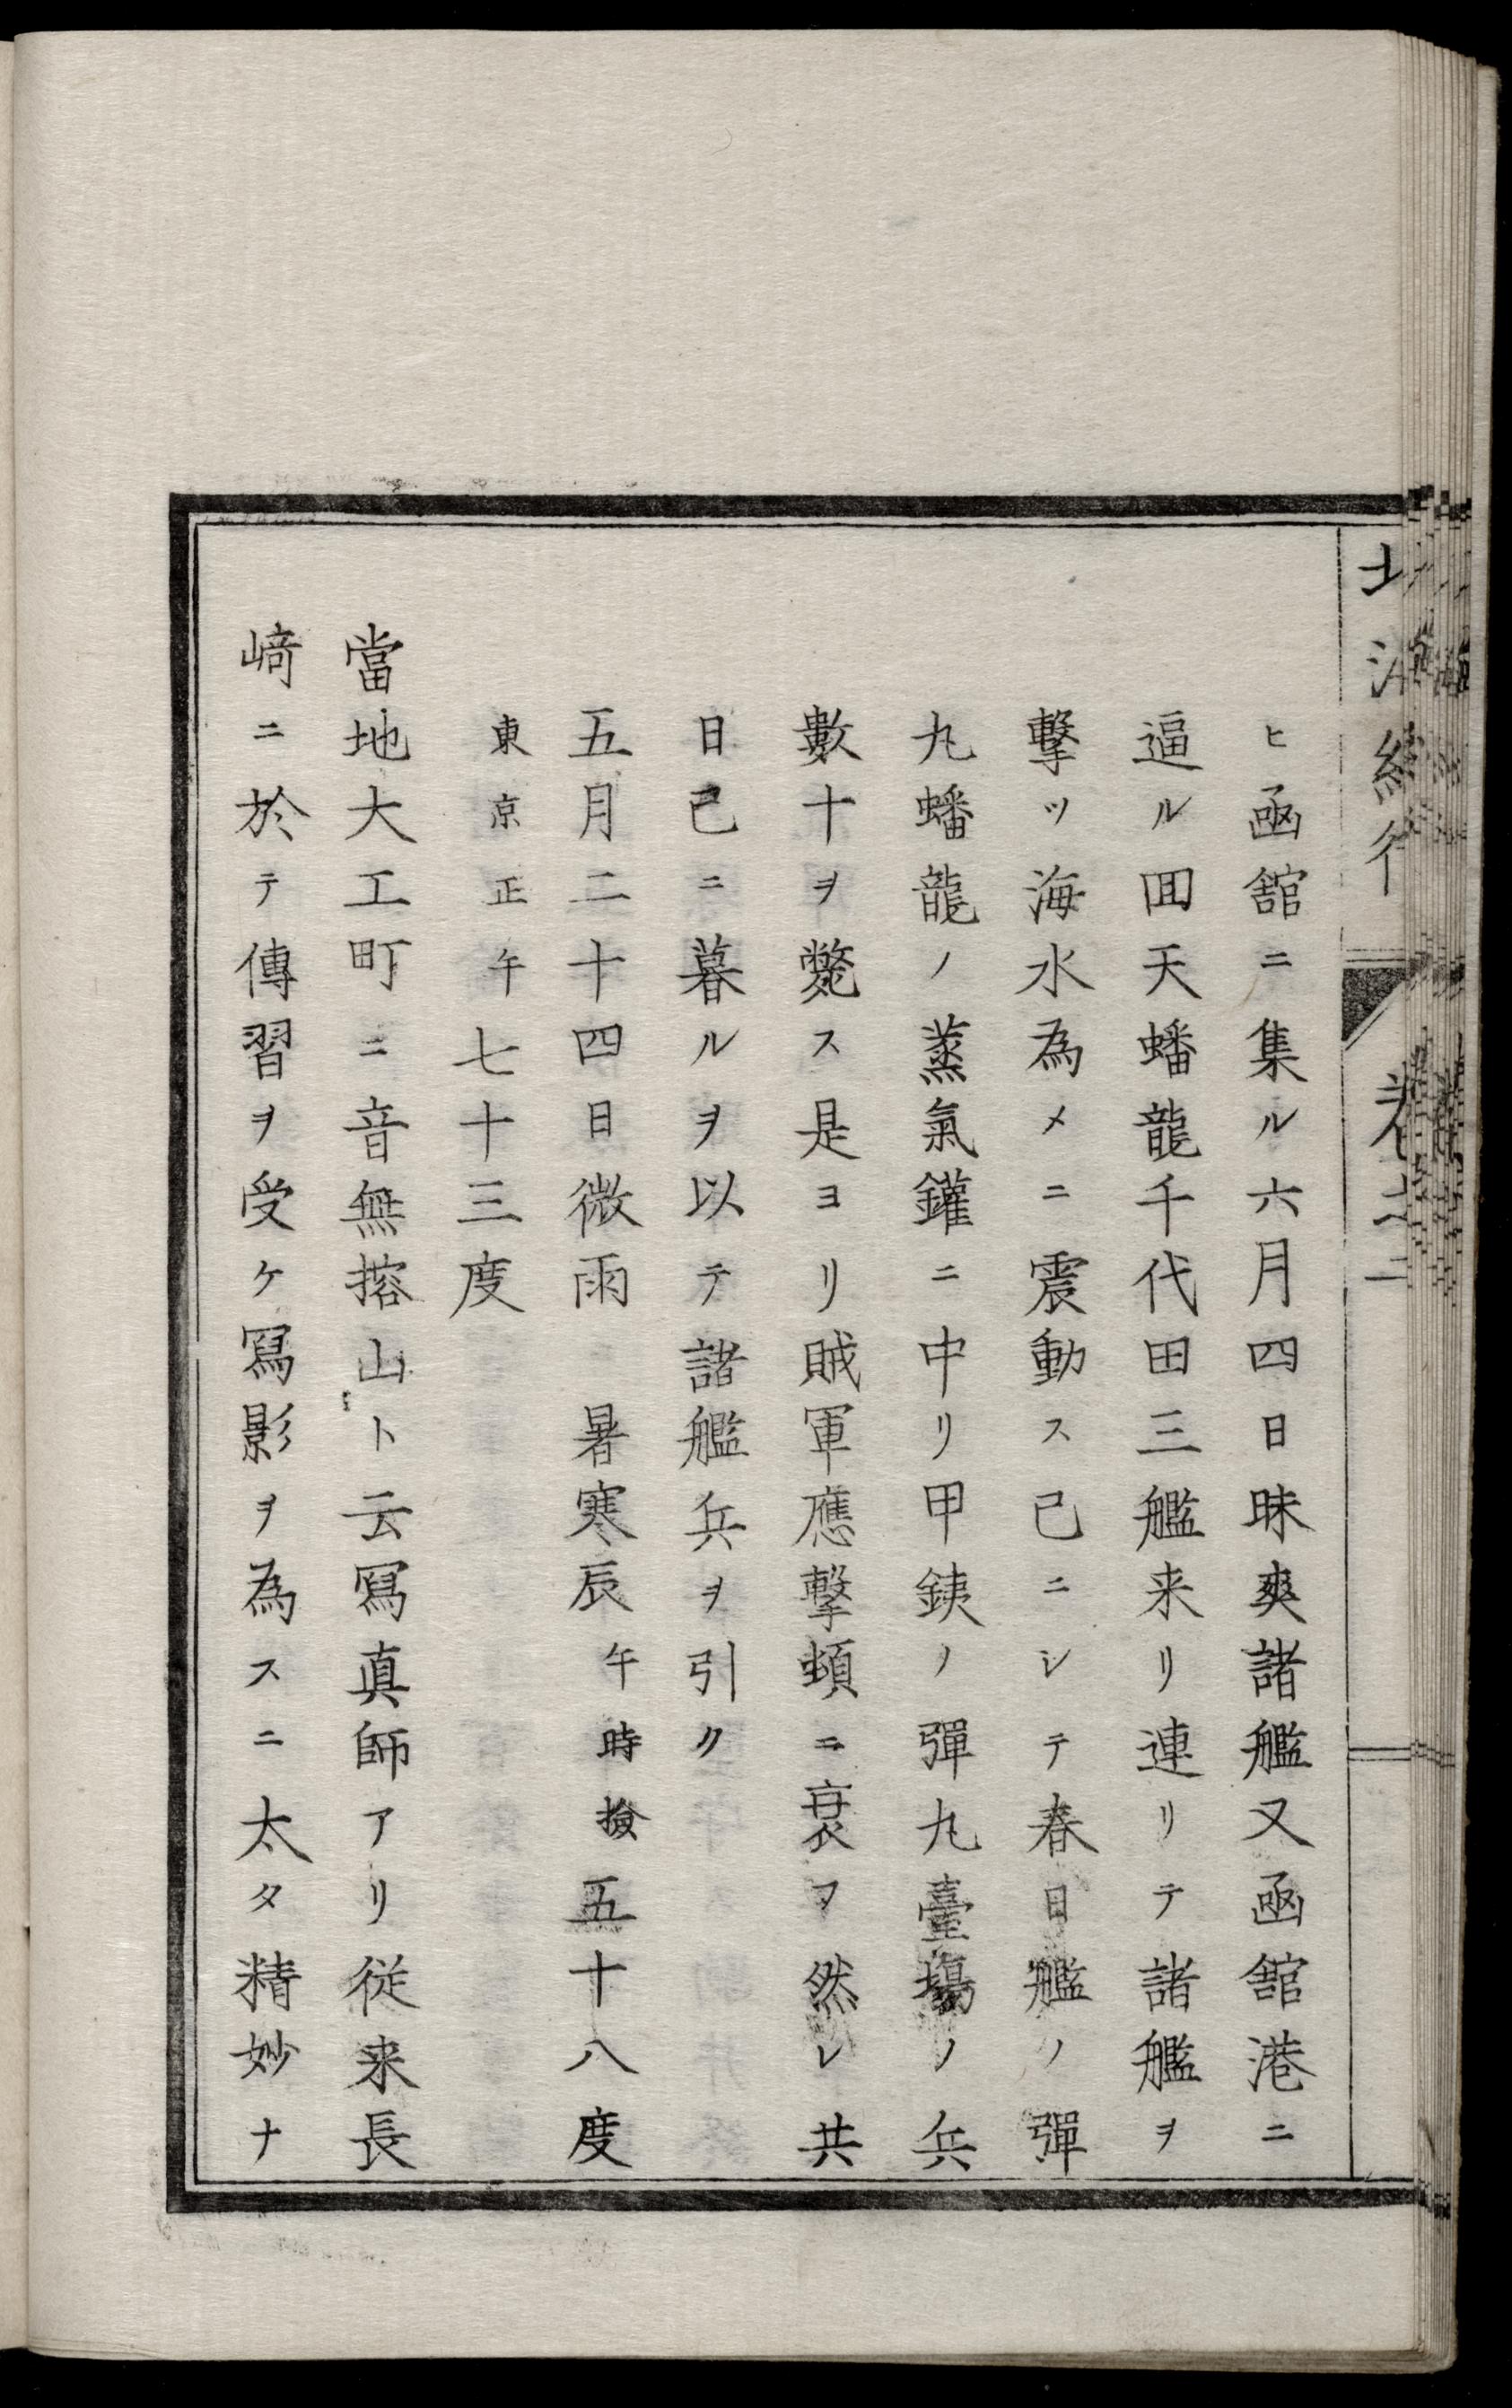 北海紀行 卷之二
ヒ函舘ニ集ル六月四日昧爽諸艦又函舘港ニ
逼ル囬天蟠龍千代田三艦来リ連リテ諸艦ヲ
撃ツ海水為メニ震動ス已ニシテ春日艦ノ彈
丸蟠龍ノ蒸氣鑵ニ中リ甲銕ノ彈丸臺塲ノ兵
數十ヲ斃ス是ヨリ賊軍應撃頓ニ衰フ然レ共
日已ニ暮ルヲ以テ諸艦兵ヲ引ク
五月二十四日微雨 暑寒辰午時撿五十八度
東京正午七十三度
當地大工町ニ音無榕山ト云冩真師アリ従来長
﨑ニ於テ傳習ヲ受ケ冩影ヲ為スニ太タ精妙ナ